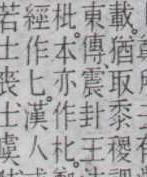 載。猶取黍稷
東傳、震卦王
枇。本亦作朼。
經作匕。漢人
若士喪、士虞